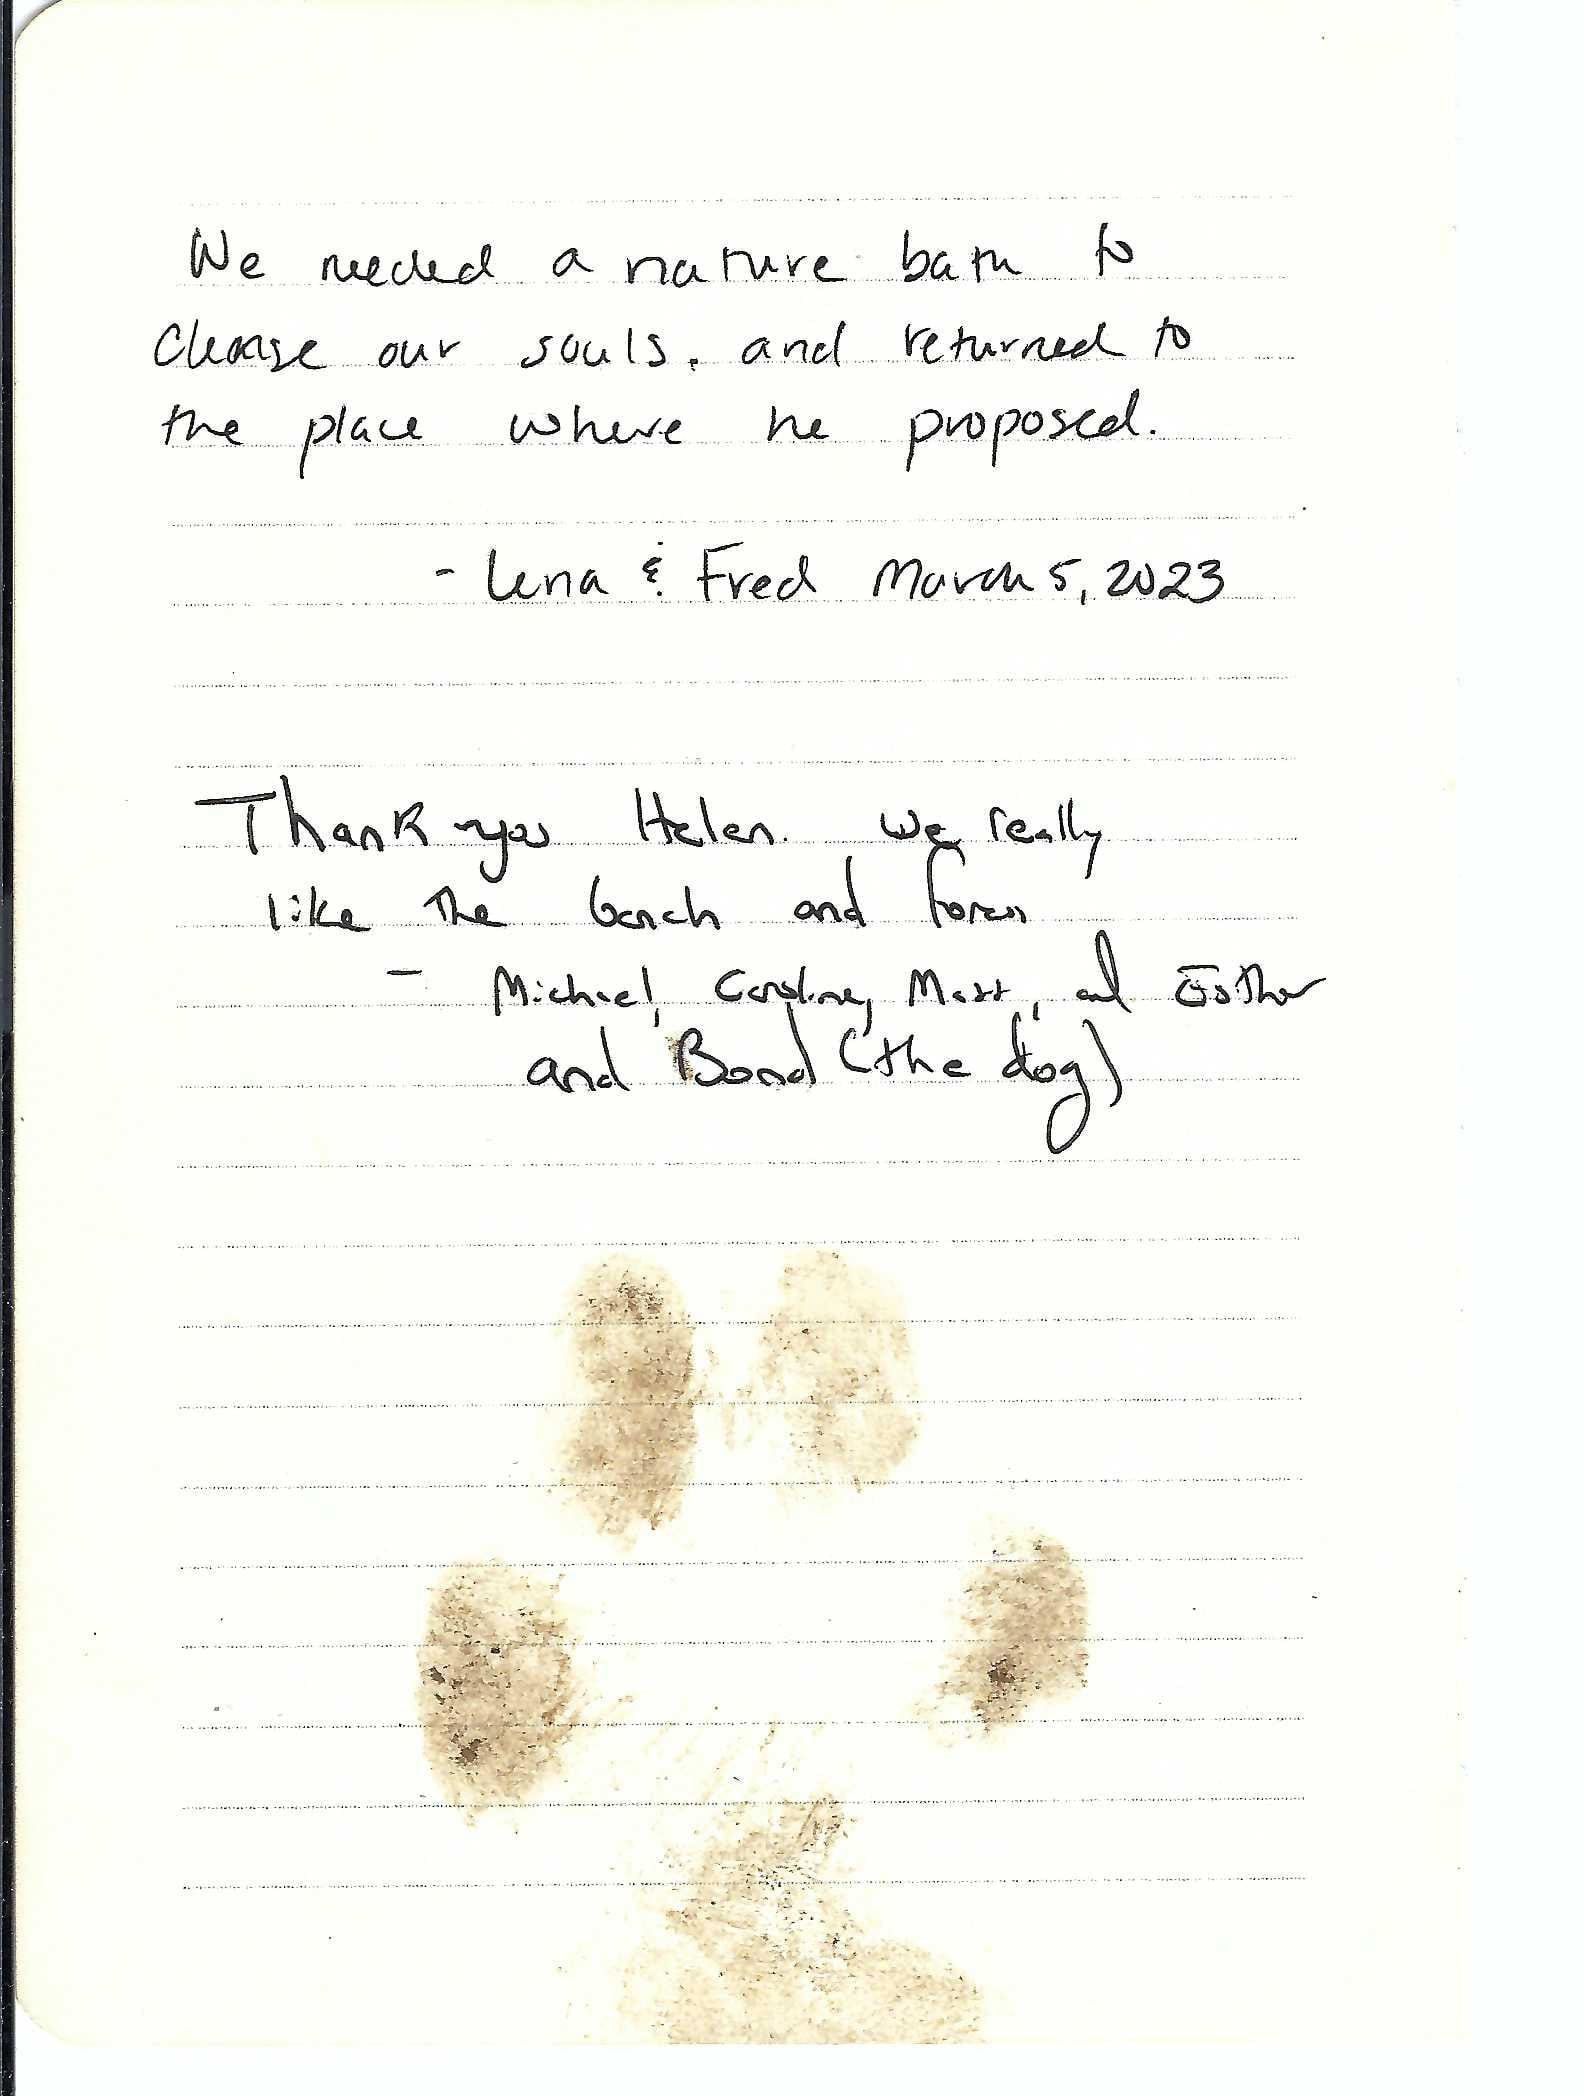 We needed a nature bath to
cleanse our souls. and returned to
the place where he proposed.
- Lena & Fred March 5, 2023
Thank you Helen. We really
like the bench and forest
- Michael, Caroline, Matt, and Esther
and Bond (the dog)